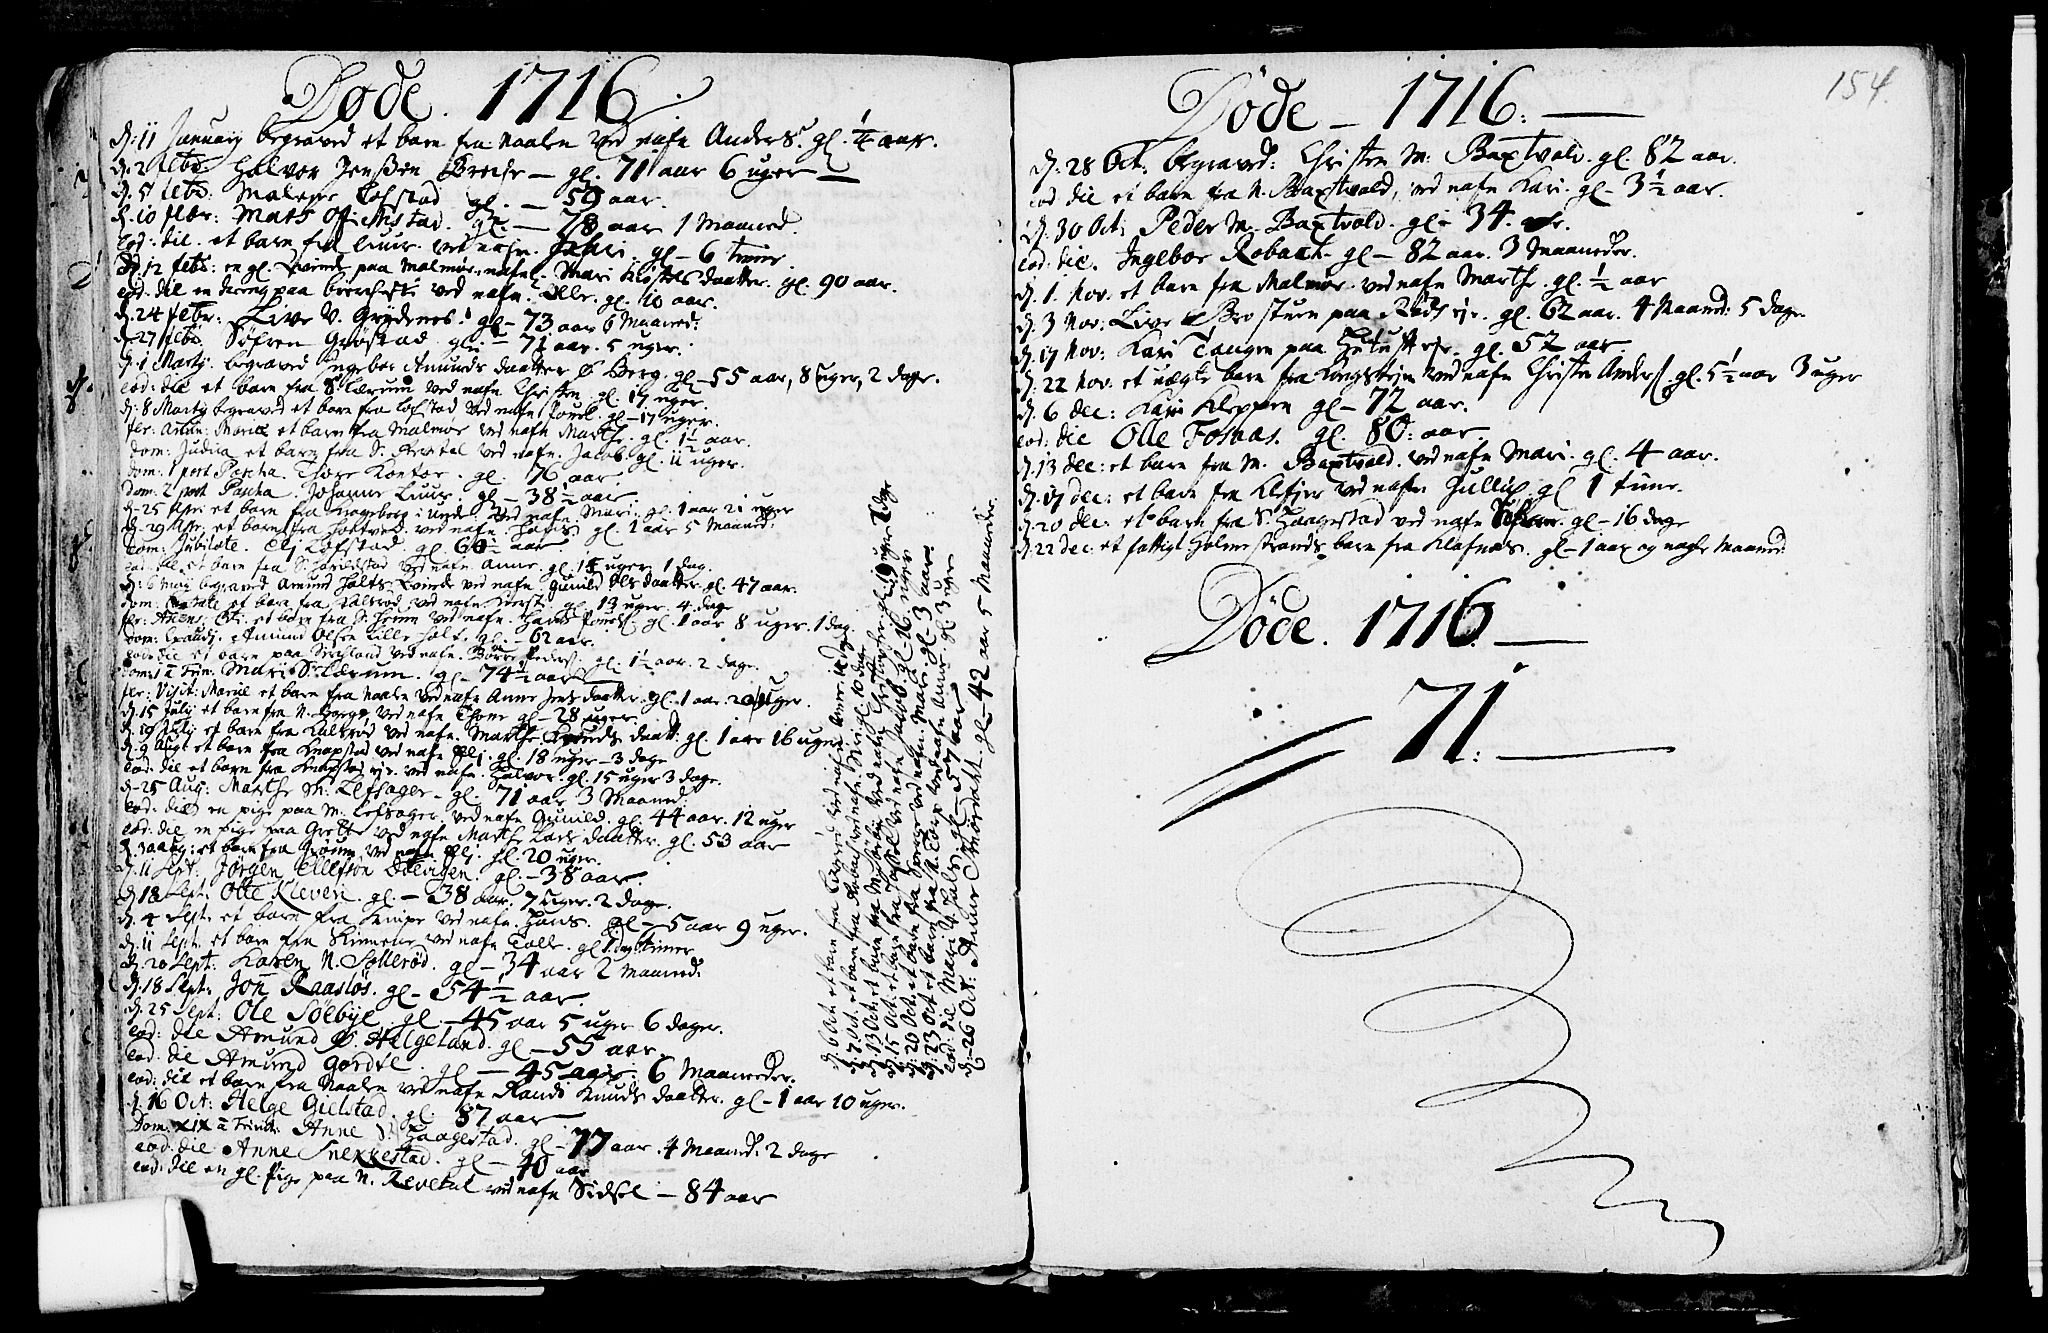 Døde. 1716.
d: 11 January begraved et barn fra Naalen ved nafn Anders. gl. ¼ aar.
d. 2 febr: Halvor Jenssen Breche — gl. 71 aar 6 uger —
d. 5 febr: Malene Lofstad gl. — 59 aar.
d. 10 febr: Mats Ø: Nistad. gl. — 78 aar 1 Maaned.
eod: die. et barn fra Linur ved nafn. gl — 6 timer
d. 12 febr: en gl. Qvinde paa Malmør, nafnl. Mari daatter. gl. 90 aar.
eod: die en dreng paa ved nafn. Olle. gl. 10 aar.
d. 24 febr: Live V. Grydenes. gl — 73 aar 6 Maaned:
d. 27 febr Søfren Grøstad gl. — 71 aar. 5 uger.
d. 1 Marty begraved Ingebor Amunds daatter Ø Berg. gl — 55 aar, 8 uger, 2 dage.
eod: die et barn fra S. Lærum ved nafn Christen gl. 17 uger.
d. 8 Marty begraved et barn fra Lofstad ved nafn gl — 17 uger.
fer: Anun: Mariæ et barn fra Malmør ved nafn Marthe. gl. 1½ aar.
dom: Judica et barn fra S. Revetal ved nafn. Jacob gl. 11 uger.
dom: 1 post Pascha. Thore Kontor. gl. 76 aar.
Dom: 2 post Pascha. Johanne Linur. gl — 38½ aar
d. 25 Apr: et barn fra ved nafn. Mari. gl. 1 aar 21 uger
d. 29 Apr: et barn fra Holtved. ved nafn. Hans gl. 1 aar 5 Maaned:
dom: Jubilate. Elj Lofstad. gl 60½ aar
eod: die et barn fra S. Harildstad ved nafn Anne. gl 15 uger 1 dag.
d. 6 May begraved Amund Holts Qvinde ved nafn Gunild Ols daatter. gl. 47 aar.
dom: et barn fra Kalsrød, ved nafn Kiersti gl. 13 uger. 4 dage
fer: Ascens: Xti: et barn fra S. Hemn ved nafn. Hans gl. 1 aar 8 uger. 1 dag
dom: Exaudj. Amund Olsen Lille Holt. gl — 62 aar.
eode die et barn paa Sirikland ved nafn. Børre Peders. gl. 1½ aar. 2 dage.
dom: 1 à Trin: Mari S: Lærum. gl — 74½ aar
fer: Visit: Mariæ et barn fra Naalen ved nafn Anne Jens daatter gl. 1 aar uger.
d. 15 July et barn fra N. Borge ved nafn Thore gl — 28 uger.
d. 19 July et barn fra Kalsrød ved nafn. Marthe daatt: gl 1 aar 16 uger
d. 9 Augt et barn fra Knapstad ved nafn Elj. gl. 18 uger — 3 dage
eod: die et barn fra Knapstad eje. ved nafn. Halvor. gl. 15 uger 3 dage.
d. 25 Aug: Marthe M: Lefsager. gl. 71 aar 3 Maaned:
eod: die en pige paa M. Lefsager. ved nafn Gunild. gl. 44 aar. 12 uger
eod: die en pige paa Grette ved nafn Marthe Lars daatter. gl. 53 aar
d. 3 aug: et barn fra Grøum ved nafn Elj. gl. 20 uger.
d. 11 Sept: Jørgen Ellefsøn Døevigen. gl. — 38 aar.
d. 18 Sept: Olle Kleven. gl. — 38 aar. 7 uger. 2 dage.
d. 4 Sept: et barn fra Kempe ved nafn. Hans. gl — 5 aar 9 uger.
d. 11 Sept: et barn fra Kimmene ved nafn Tolle. gl timer
d. 20 Sept: Karen N. Sollerød. gl — 34 aar 2 Maaned:
d. 18 Sept: Jon Raastøs. gl — 54½ aar.
d. 25 Sept: Ole Sølbye. gl. — 45 aar 5 uger 6 dager.
eod: die Amund Ø. Helgeland. gl — 55 aar.
eod: die Amund Gordtl. gl — 45 aar. 6 Maaneder.
eod: die et barn fra Naalen ved nafn Randi Knuds daatter. gl — 1 aar 10 uger.
d. 16 Oct: Helge Gielstad. gl. 87 aar
Dom: XIX à Trinit: Anne S. Haagestad. gl — 77 aar. 4 Maaned: 2 dage
eod: die Anne Snekkestad. gl — 40 aar
eod: die en gl. Pige paa N. Revetal ved nafn Sidsel — 84 aar
d. 6 Oct et barn fra ved nafn
d. 7 Oct. et barn fra Robach ved nafn. Siri gl. 10 dage
d. 13 Oct. et barn fra M. Sørby ved nafn gl. 19 uger 2 dage
d. 15 Oct et barn fra ved nafn Jacob. gl. 16 uger
d. 20 Oct. et barn fra Sprege ved nafn. Mari. gl — 3 aar.
d. 23 Oct et barn fra N. Tare ved nafn Anne. gl. 3 uger
eod: die Mari V. Hals. gl — 57 aar
d. 26 Oct: Anne Smørvaht. gl — 42 aar 5 Maaneder.
154.
Døde — 1716. —
d. 28 Oct: begraved: Christen M: Baxtvald. gl. 82 aar.
eod die et barn fra N. Baxtvald, ved nafn Kari. gl — 3½ aar.
d. 30 Oct: Peder M. Baxtvald. gl — 34. aar.
eod: die. Ingebor Robach. gl — 82 aar. 3 Maaneder.
d. 1. Nov. et barn fra Malmør. ved nafn Marthe. gl. ½ aar
d. 3 Nov: Live Brosteen paa Røds eje. gl. 62 aar. 4 Maaned: 5 dage
d. 17 Nov: Kari Tangen paa eje. gl. 52 aar
d. 22 Nov. et uægte barn fra ved nafn Christen Anders. gl. 5½ aar 3 uger
d. 6 dec: Kari Kleppen gl — 72 aar.
eod: die Olle Fosnas. gl. 80: aar
d. 13 dec: et barn fra M. Baxtvald. ved nafn Mari. gl. 4 aar.
d. 17 dec: et barn fra Klefjer ved nafn Gullu gl 1 time.
d. 20 dec: et barn fra S. Haagestad ved nafn gl — 16 dage
d. 22 dec: et fattigt Holmestrands barn fra Klafnas. gl — 1 aar og nogle Maaned:
Døde. 1716 —
71. —